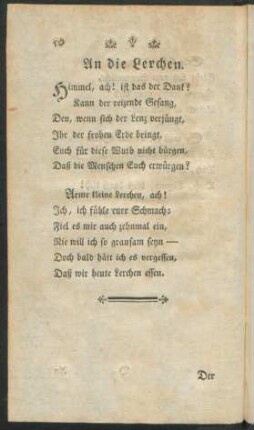 An die Lerchen.
Himmel, ach! ist das der Dank?
Kann der reizende Gesang,
Den, wenn sich der Lenz verjüngt,
Ihr der frohen Erde bringt,
Euch für diese Wuth nicht bürgen,
Daß die Menschen Euch erwürgen?
Arme kleine Lerchen, ach!
Ich, ich fühle eure Schmach:
Fiel es mir auch zehnmal ein,
Nie will ich so grausam seyn —
Doch bald hätt ich es vergessen,
Daß wir heute Lerchen essen.
Der